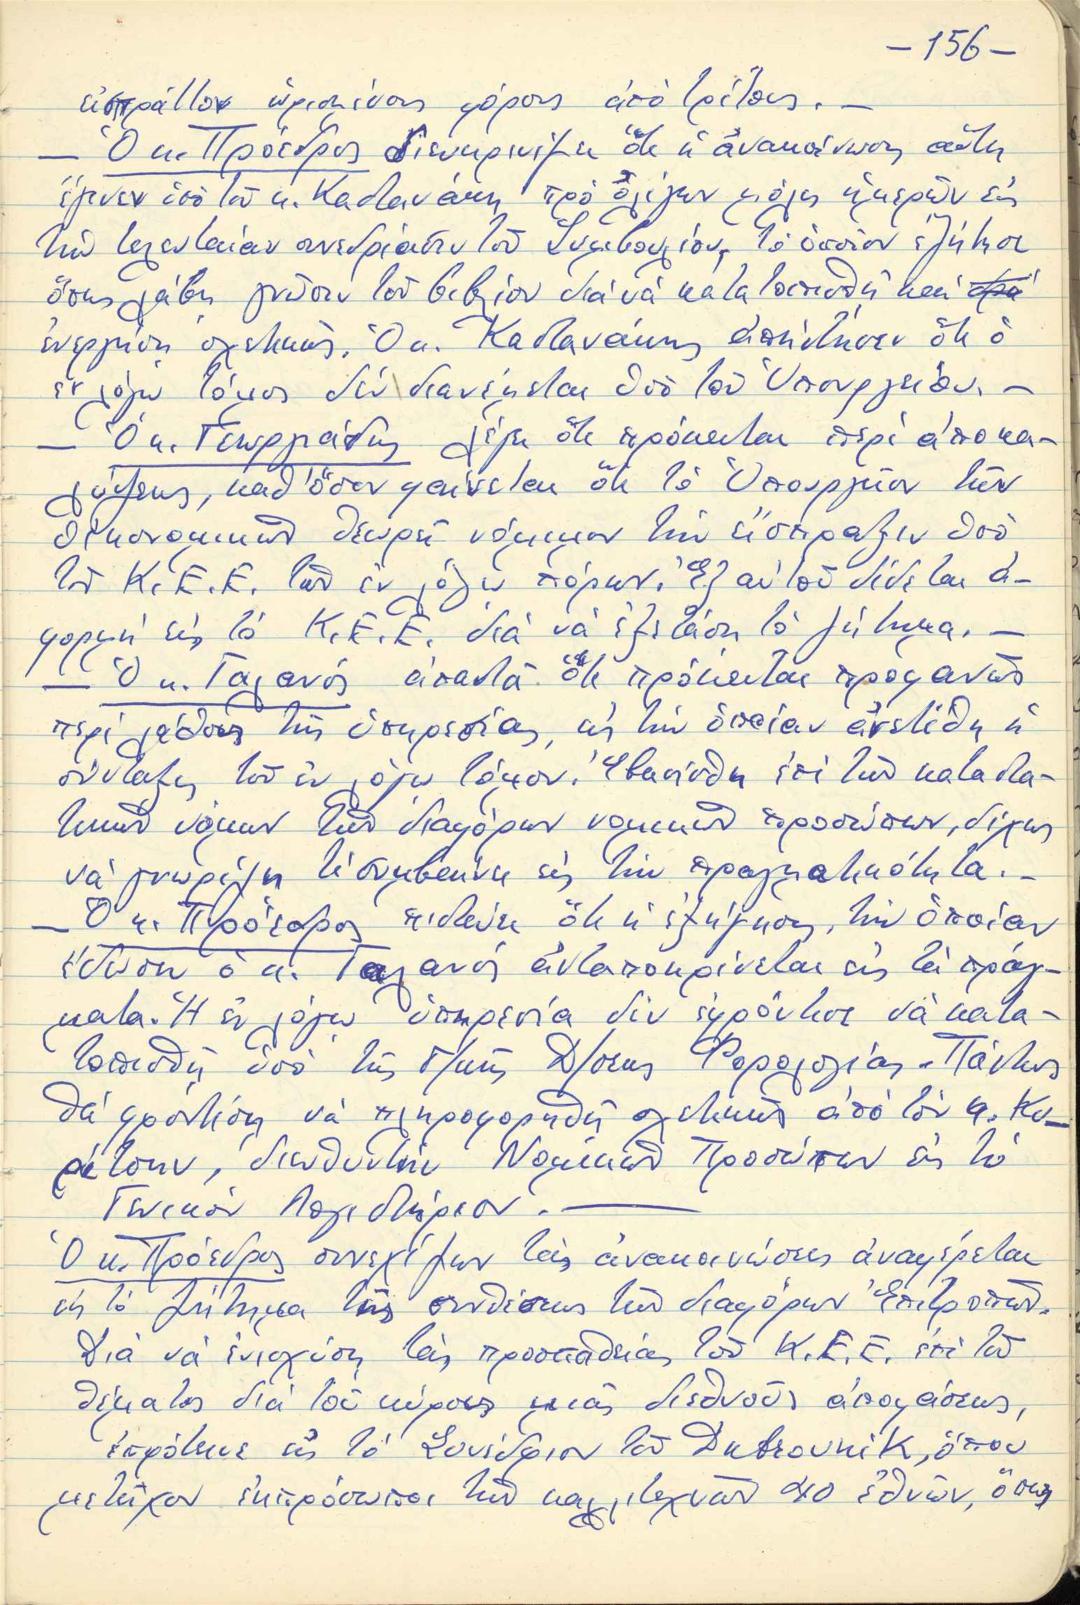 -156-
εἰσπράττον ὡρισμένους φόρους ἀπό τρίτους. -
- Ὁ κ. Πρόεδρος διευκρινίζει ὅτι ἡ ἀνακοίνωσις αὕτη
ἔγινεν ὑπό τοῦ κ. Καστανάκη πρό ὀλίγων μόλις ἡμερῶν εἰς
τήν τελευταίαν συνεδρίασιν τοῦ Συμβουλίου, τό ὁποῖον ἐζήτησε
ὅπως λάβῃ γνῶσιν τοῦ βιβλίου διά νά κατατοπισθῇ καί
ἐνεργήσῃ σχετικῶς. Ὁ κ. Καστανάκης ἀπήντησεν ὅτι ὁ
ἐν λόγῳ τόμος δέν διανέμεται ὑπό τοῦ Ὑπουργείου. -
- Ὁ κ. Γεωργιάδης λέγει ὅτι πρόκειται περί ἀποκα-
λύψεως, καθ' ὅσον φαίνεται ὅτι τό Ὑπουργεῖον τῶν
Οἰκονομικῶν θεωρεῖ νόμιμον τήν εἴσπραξιν ὑπό
τοῦ Κ.Ε.Ε. τῶν ἐν λόγῳ πόρων. Ἐξ αὐτοῦ δίνεται ἀ-
φορμή εἰς τό Κ.Ε.Ε. διά νά ἐξετάσῃ τό ζήτημα. -
- Ὁ κ. Γαλανός ἀπαντᾶ ὅτι πρόκειται προφανῶς
περί λάθους τῆς ὑπηρεσίας, εἰς τήν ὁποίαν ἀνετέθη ἡ
σύνταξις τοῦ ἐν λόγῳ τόμου. Ἐβασίσθη ἐπί τῶν καταστα-
τικῶν νόμων τῶν διαφόρων νομικῶν προσώπων, δίχως
νά γνωρίζῃ τί συμβαίνει εἰς τήν πραγματικότητα. -
- Ὁ κ. Πρόεδρος πιστεύει ὅτι ἡ ἐξήγησις, τήν ὁποίαν
ἔδωσεν ὁ κ. Γαλανός ἀνταποκρίνεται εἰς τά πράγ-
ματα. Ἡ ἐν λόγῳ ὑπηρεσία δέν ἐφρόντισε νά κατα-
τοπισθῇ ὑπό τῆς Γ/κῆς Δ/σεως Φορολογίας. Πάντως
θά φροντίσῃ νά πληροφορηθῇ σχετικῶς ἀπό τόν κ. Κυ-
ρίτσην, διευθυντήν Νομικῶν Προσώπων εἰς τό
Γενικόν Λογιστήριον. -
Ὁ κ. Πρόεδρος συνεχίζων τάς ἀνακοινώσεις ἀναφέρεται
εἰς τό ζήτημα τῆς συνθέσεως τῶν διαφόρων Ἐπιτροπῶν.
Διά νά ἐνισχύσῃ τάς προσπαθείας τοῦ Κ.Ε.Ε. ἐπί τοῦ
θέματος διά τοῦ κύρους μιᾶς διεθνοῦς ἀποφάσεως,
ἐπρότεινε εἰς τό Συνέδριον τοῦ Ντυβρουνίκ, ὅπου
μετεῖχον ἐκπρόσωποι τῶν καλλιτεχνῶν 40 ἐθνῶν, ὅπως